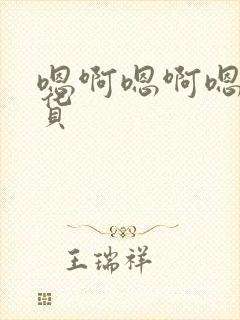 嗯啊嗯啊嗯
王瑞祥